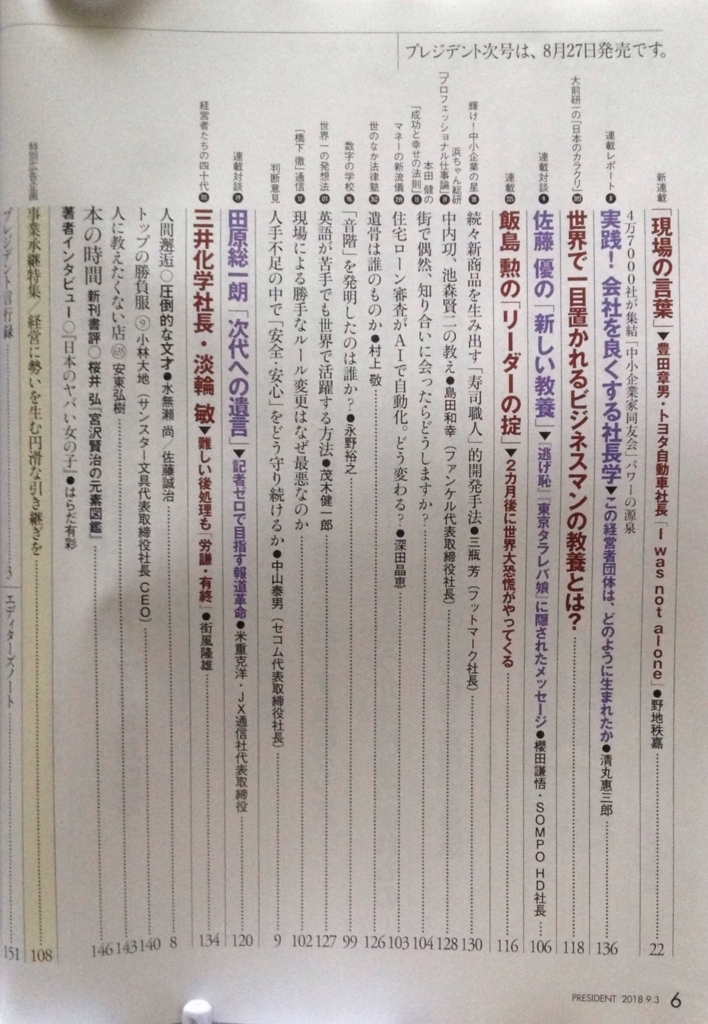 プレジデント次号は、8月27日発売です。
新連載 「現場の言葉」▼豊田章男・トヨタ自動車社長「I was not alone」●野地秩嘉 22
4万7000社が集結「中小企業家同友会」パワーの源泉
連載レポート 実践！ 会社を良くする社長学▼この経営者団体は、どのように生まれたか●清丸惠三郎 136
大前研一の「日本のカラクリ」 世界で一目置かれるビジネスマンの教養とは？ 118
連載対談 佐藤 優の「新しい教養」▼『逃げ恥』『東京タラレバ娘』に隠されたメッセージ●櫻田謙悟・SOMPO HD社長 106
連載 飯島 勲の「リーダーの掟」▼2カ月後に世界大恐慌がやってくる 116
輝け！中小企業の星 続々新商品を生み出す「寿司職人」的開発手法●三瓶 芳（フットマーク社長） 130
浜ちゃん総研
「プロフェッショナル仕事論」 中内㓛、池森賢二の教え●島田和幸（ファンケル代表取締役社長） 128
本田 健の
「成功と幸せの法則」 街で偶然、知り合いに会ったらどうしますか？ 104
マネーの新流儀 住宅ローン審査がAIで自動化。どう変わる？●深田晶恵 103
世のなか法律塾 遺骨は誰のものか●村上 敬 126
数字の学校 「音階」を発明したのは誰か？●永野裕之 99
世界一の発想法 英語が苦手でも世界で活躍する方法●茂木健一郎 127
「橋下 徹」通信 現場による勝手なルール変更はなぜ最悪なのか 102
判断意見 人手不足の中で「安全・安心」をどう守り続けるか●中山泰男（セコム代表取締役社長） 9
連載対談 田原総一朗「次代への遺言」▼記者ゼロで目指す報道革命●米重克洋・JX通信社代表取締役 120
経営者たちの四十代 三井化学社長・淡輪 敏▼難しい後処理も「労謙・有終」●街風隆雄 134
人間邂逅○圧倒的な文才●水無瀬 尚／佐藤誠治 8
トップの勝負服⑨小林大地（サンスター文具代表取締役社長 CEO） 140
人に教えたくない店 安東弘樹 143
本の時間 新刊書評○桜井 弘『宮沢賢治の元素図鑑』 146
著者インタビュー○『日本のヤバい女の子』●はらだ有彩
特別広告企画 事業承継特集／経営に勢いを生む円滑な引き継ぎを 108
プレジデント言行録 3 エディターズノート 151
PRESIDENT 2018.9.3 6